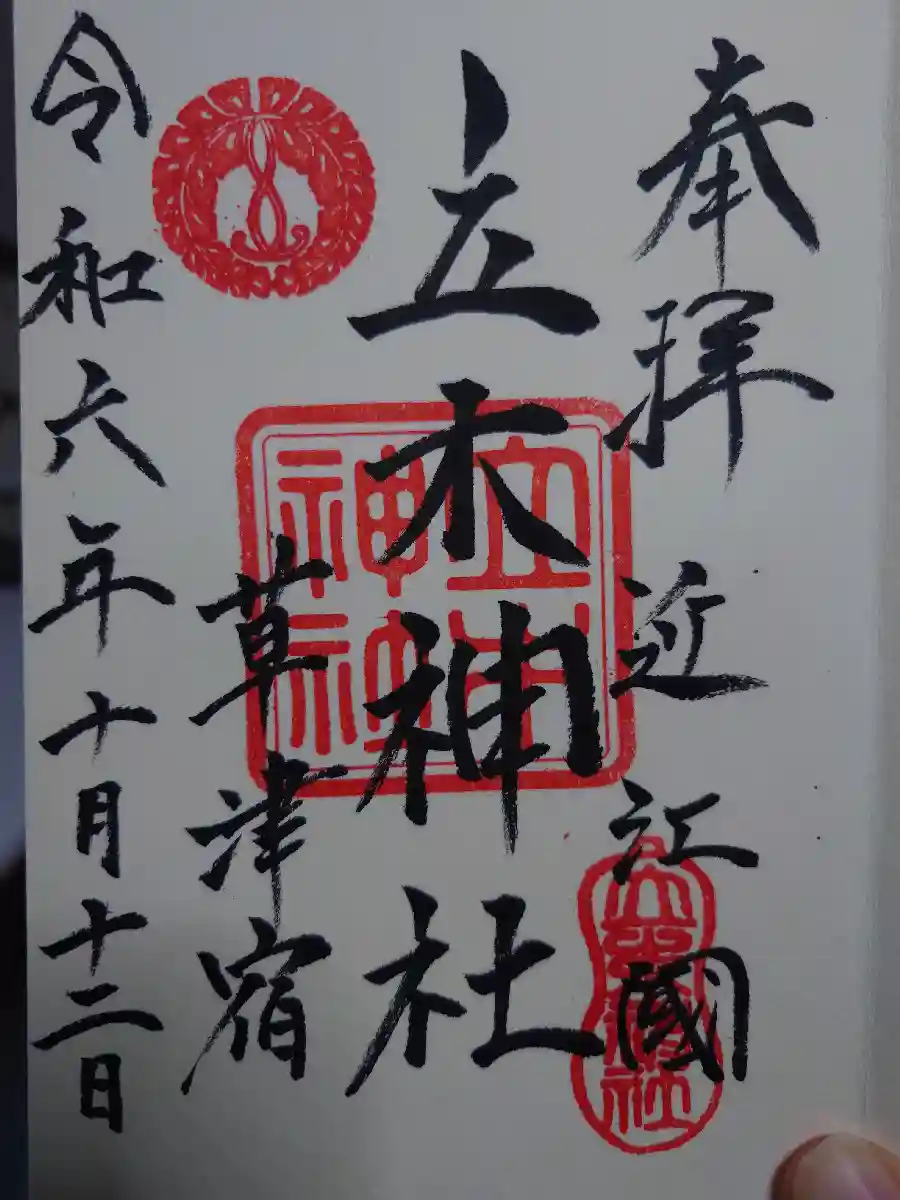 奉拝
近江國
立木神社
草津宿
令和六年十月十二日
立木神社
立木神社